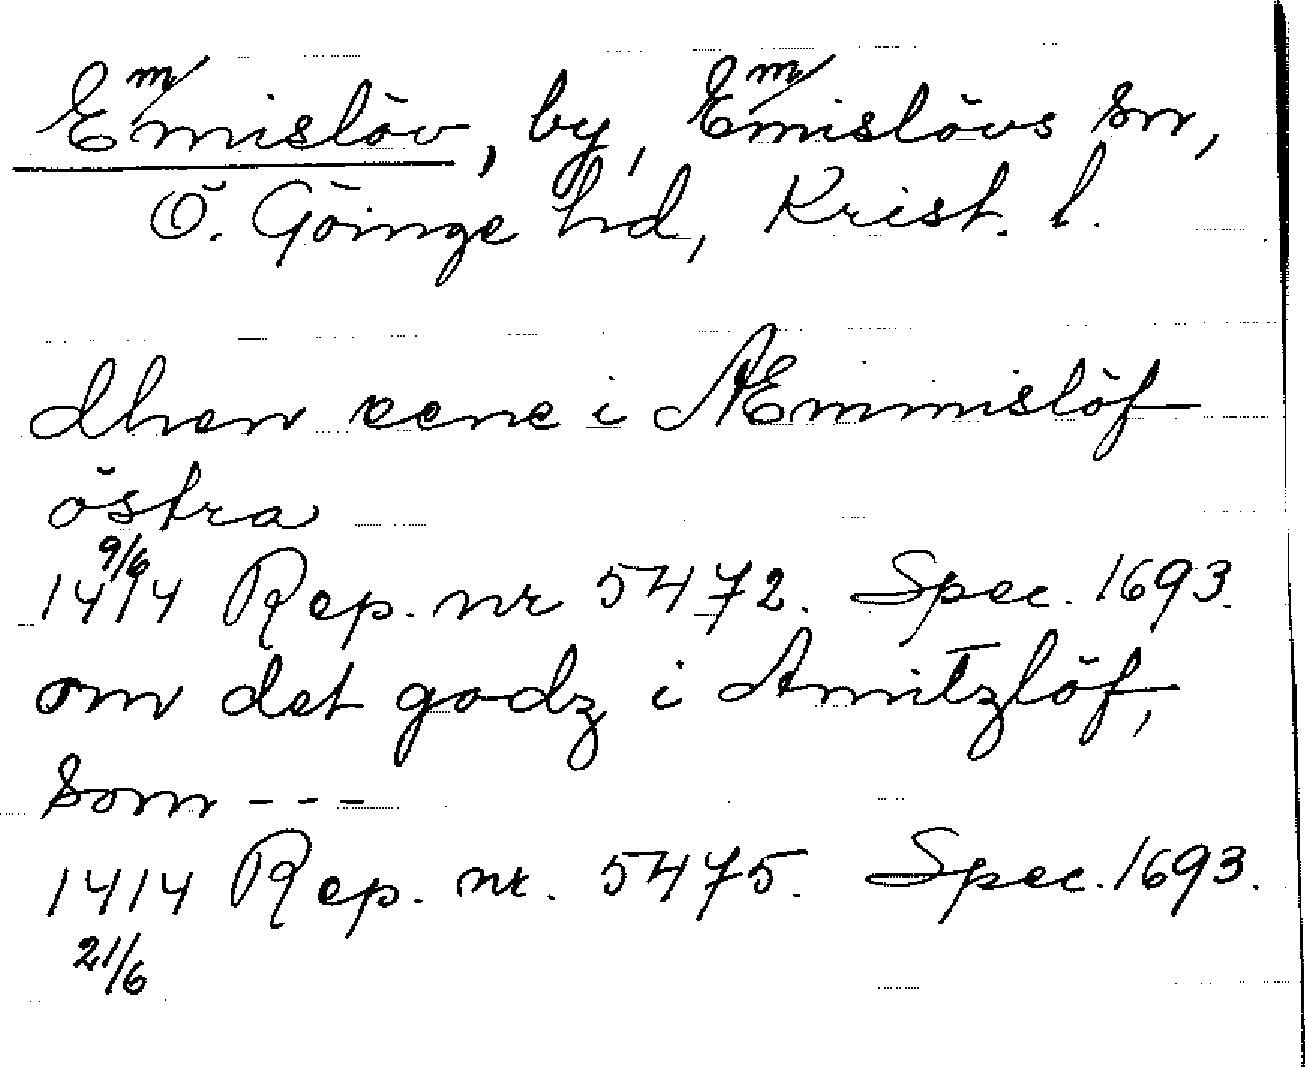 Emmislöv, by, Emmislövs sn,
Ö. Göinge hd, Krist. l.
dhen eene i Æmmislöf
östra
1414 9/6 Rep. nr 5472. Spec. 1693.
om det godz i Amitzlöf,
som ---
1414 Rep. nr. 5475. Spec. 1693.
21/6